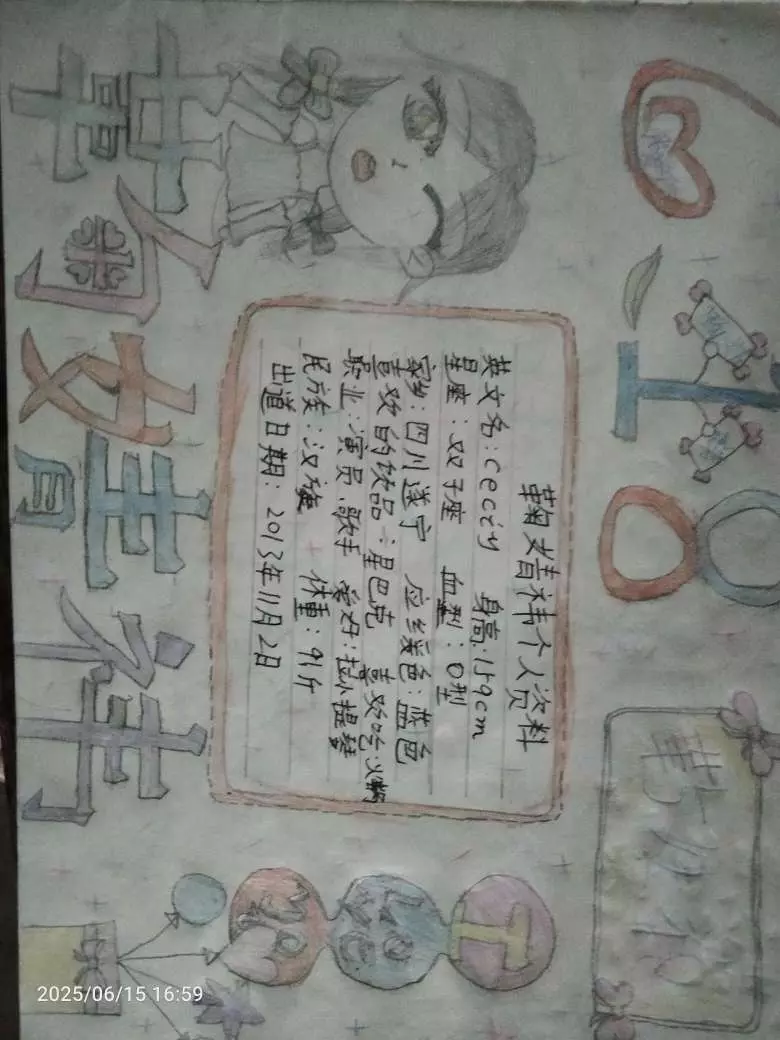 鞠婧祎
鞠婧祎个人资料
英文名:cecity 身高:159cm
星座:双子座 血型:O型
家乡:四川遂宁 应缓色:蓝色
喜欢的饮品:星巴克 喜欢吃火锅
职业:演员.歌手 爱好:拉小提琴
民族:汉族 体重:91斤
出道日期:2013年11月2日
I
2025/06/15 16:59